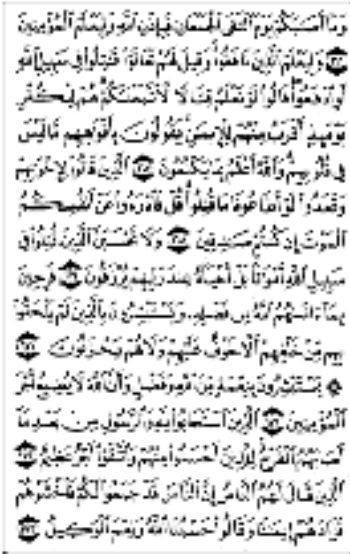 وَمَا أَصَابَكُمْ يَوْمَ الْتَقَى الْجَمْعَانِ فَبِإِذْنِ اللَّهِ وَلِيَعْلَمَ الْمُؤْمِنِينَ
۝ وَلِيَعْلَمَ الَّذِينَ نَافَقُوا وَقِيلَ لَهُمْ تَعَالَوْا قَاتِلُوا فِي سَبِيلِ اللَّهِ
أَوِ ادْفَعُوا قَالُوا لَوْ نَعْلَمُ قِتَالًا لَاتَّبَعْنَاكُمْ هُمْ لِلْكُفْرِ
يَوْمَئِذٍ أَقْرَبُ مِنْهُمْ لِلْإِيمَانِ يَقُولُونَ بِأَفْوَاهِهِمْ مَا لَيْسَ
فِي قُلُوبِهِمْ وَاللَّهُ أَعْلَمُ بِمَا يَكْتُمُونَ ۝ الَّذِينَ قَالُوا لِإِخْوَانِهِمْ
وَقَعَدُوا لَوْ أَطَاعُونَا مَا قُتِلُوا قُلْ فَادْرَءُوا عَنْ أَنْفُسِكُمُ
الْمَوْتَ إِنْ كُنْتُمْ صَادِقِينَ ۝ وَلَا تَحْسَبَنَّ الَّذِينَ قُتِلُوا فِي
سَبِيلِ اللَّهِ أَمْوَاتًا بَلْ أَحْيَاءٌ عِنْدَ رَبِّهِمْ يُرْزَقُونَ ۝ فَرِحِينَ
بِمَا آتَاهُمُ اللَّهُ مِنْ فَضْلِهِ وَيَسْتَبْشِرُونَ بِالَّذِينَ لَمْ يَلْحَقُوا
بِهِمْ مِنْ خَلْفِهِمْ أَلَّا خَوْفٌ عَلَيْهِمْ وَلَا هُمْ يَحْزَنُونَ ۝
۞ يَسْتَبْشِرُونَ بِنِعْمَةٍ مِنَ اللَّهِ وَفَضْلٍ وَأَنَّ اللَّهَ لَا يُضِيعُ أَجْرَ
الْمُؤْمِنِينَ ۝ الَّذِينَ اسْتَجَابُوا لِلَّهِ وَالرَّسُولِ مِنْ بَعْدِ مَا
أَصَابَهُمُ الْقَرْحُ لِلَّذِينَ أَحْسَنُوا مِنْهُمْ وَاتَّقَوْا أَجْرٌ عَظِيمٌ ۝
الَّذِينَ قَالَ لَهُمُ النَّاسُ إِنَّ النَّاسَ قَدْ جَمَعُوا لَكُمْ فَاخْشَوْهُمْ
فَزَادَهُمْ إِيمَانًا وَقَالُوا حَسْبُنَا اللَّهُ وَنِعْمَ الْوَكِيلُ ۝